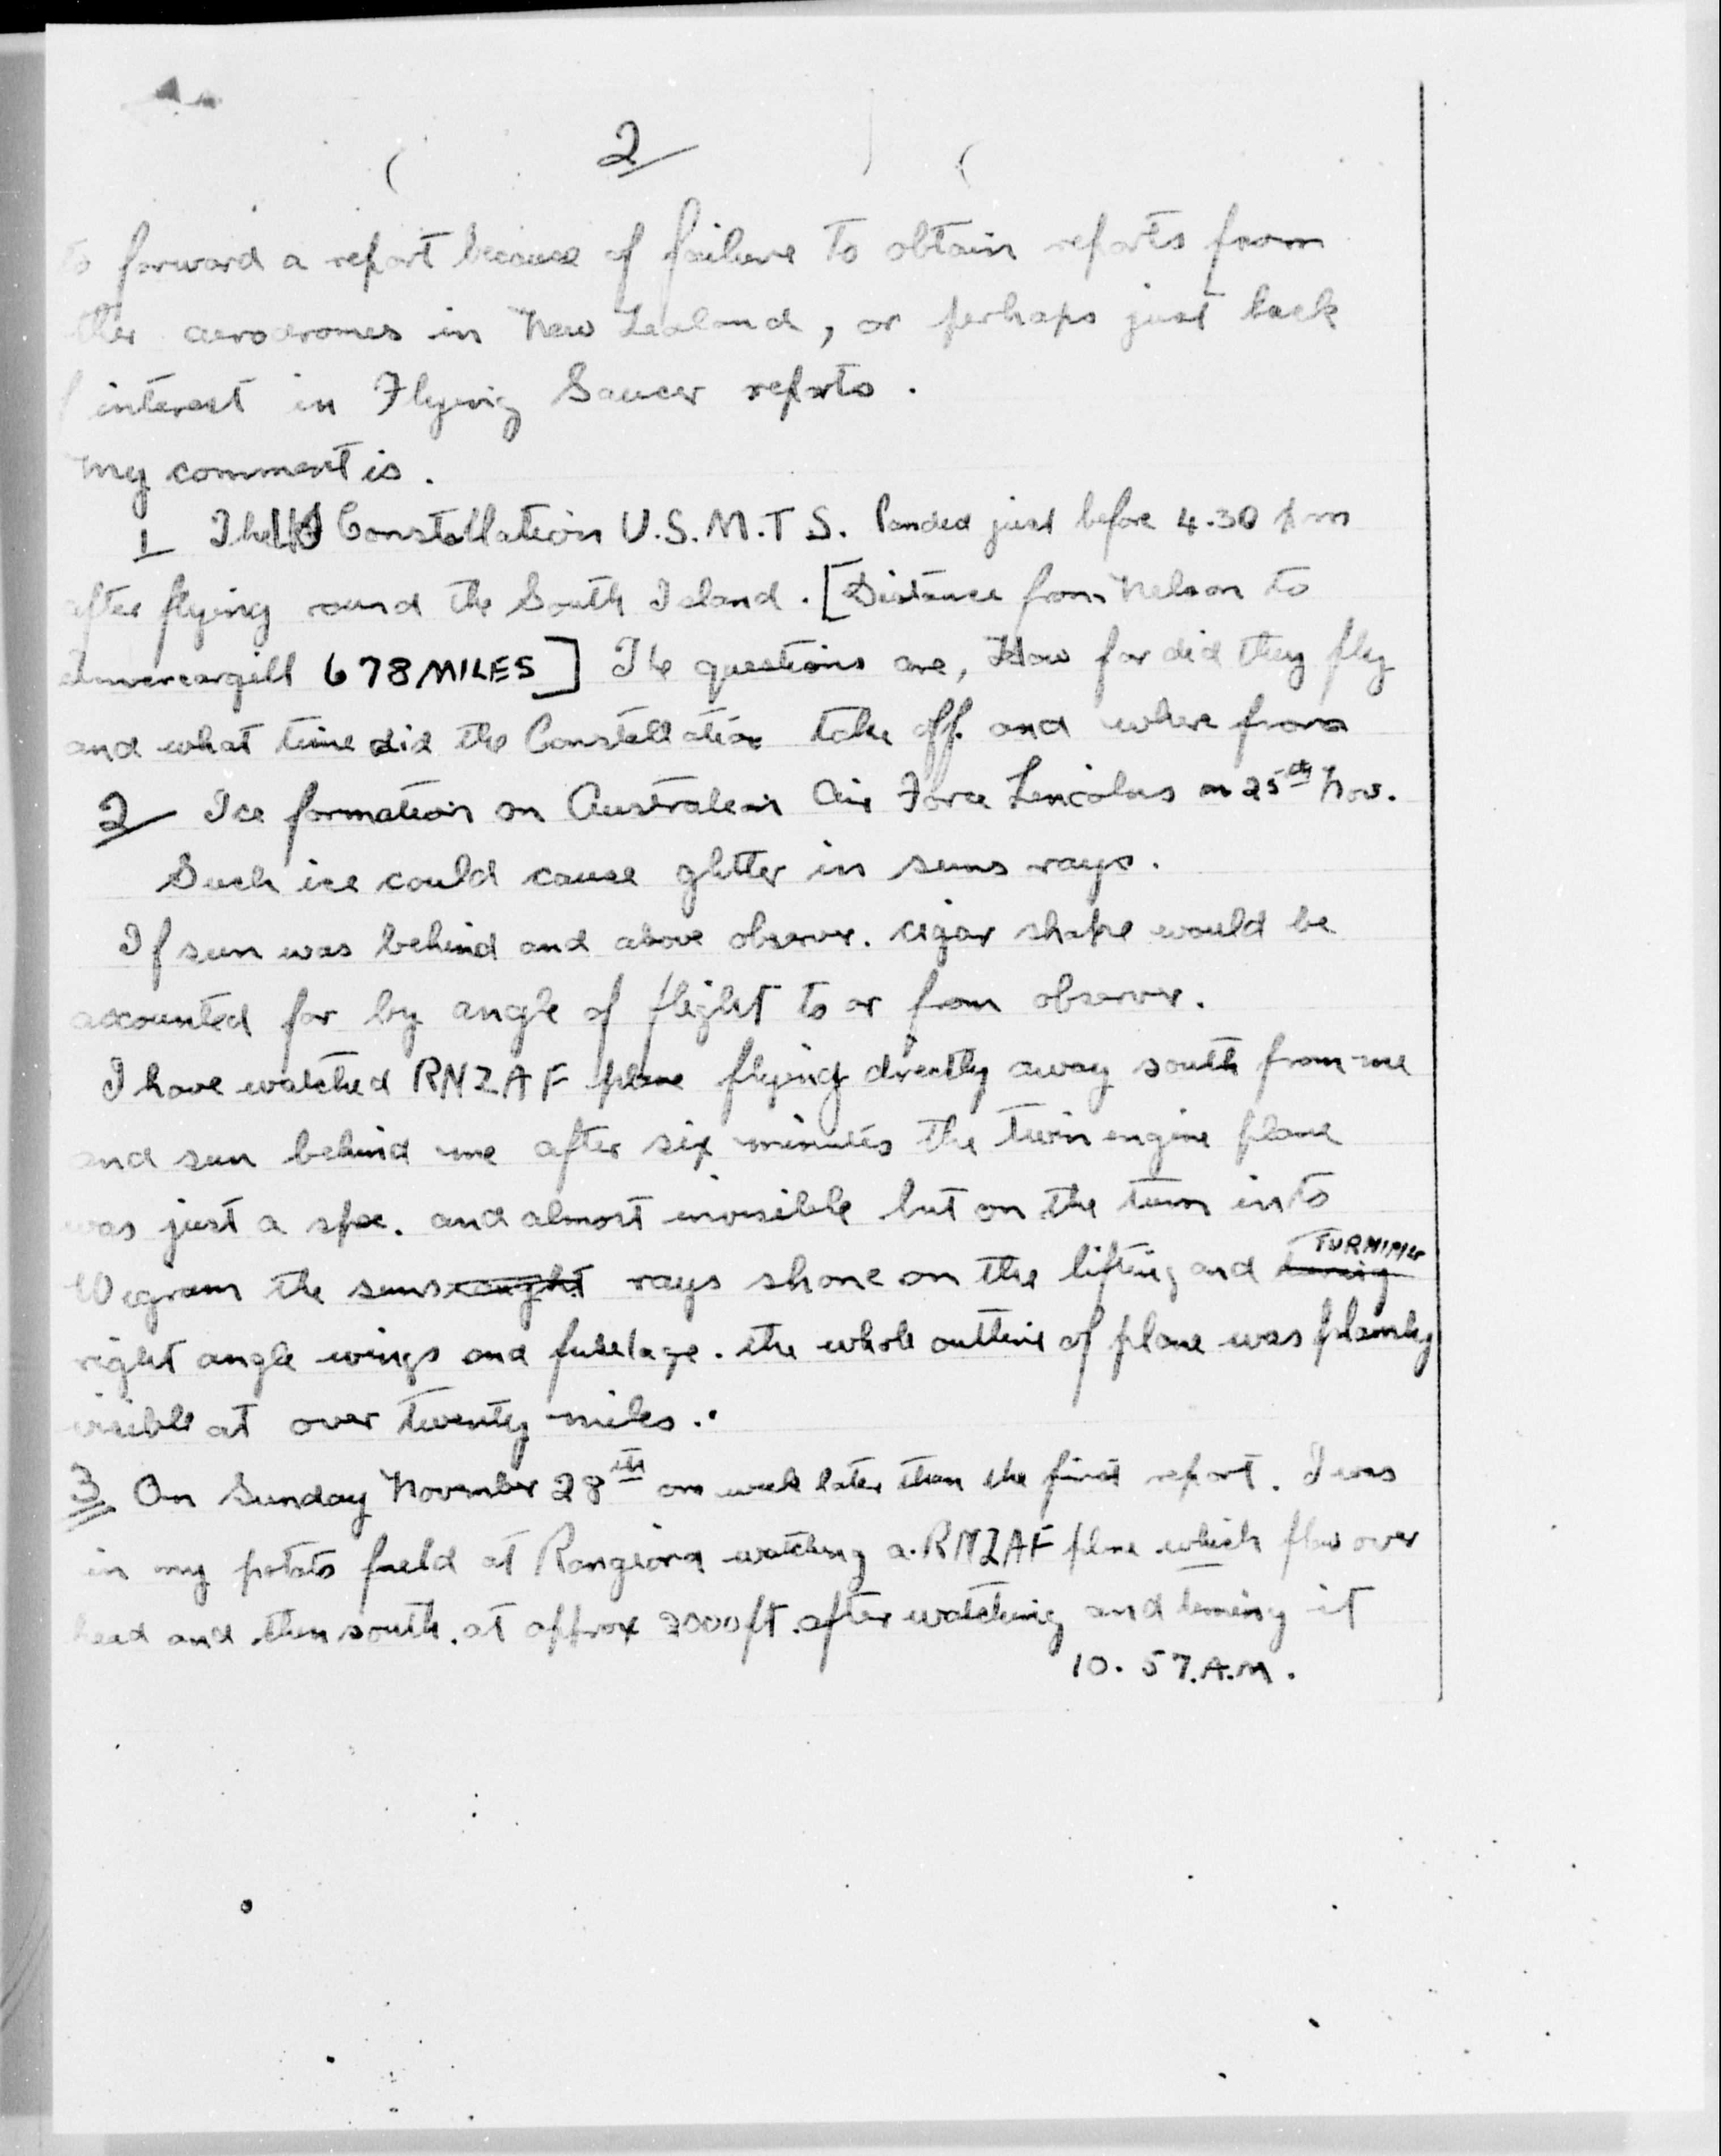 2/
to forward a report because of failure to obtain reports from
ther aerodromes in New Zealand, or perhaps just lack
f interest in Flying Saucer reports.
My comment is.
1 The Constellation U.S.M.T.S. landed just before 4.30 pm
after flying round the South Island. [Distance from Nelson to
Invercargill 678 MILES] The questions are, How far did they fly
and what time did the Constellation take off. and where from
2/ Ice formation on Australian Air Force Lincolns on 25th Nov.
Such ice could cause glitter in suns rays.
If sun was behind and above observer. cigar shape would be
accounted for by angle of flight to or from observer.
I have watched RNZAF plane flying directly away south from me
and sun behind me after six minutes the twin engine plane
was just a spec. and almost invisible but on the turn into
Wegram the suns caught rays shone on the lifting and turning TURNING
right angle wings and fuselage. the whole outline of plane was plainly
visible at over twenty miles.
3/ On Sunday November 28th one week later than the first report. I was
in my potato field at Rangiora watching a RNZAF plane which flew over
head and then south. at approx 2000ft. after watching and timing it
10.57.A.M.